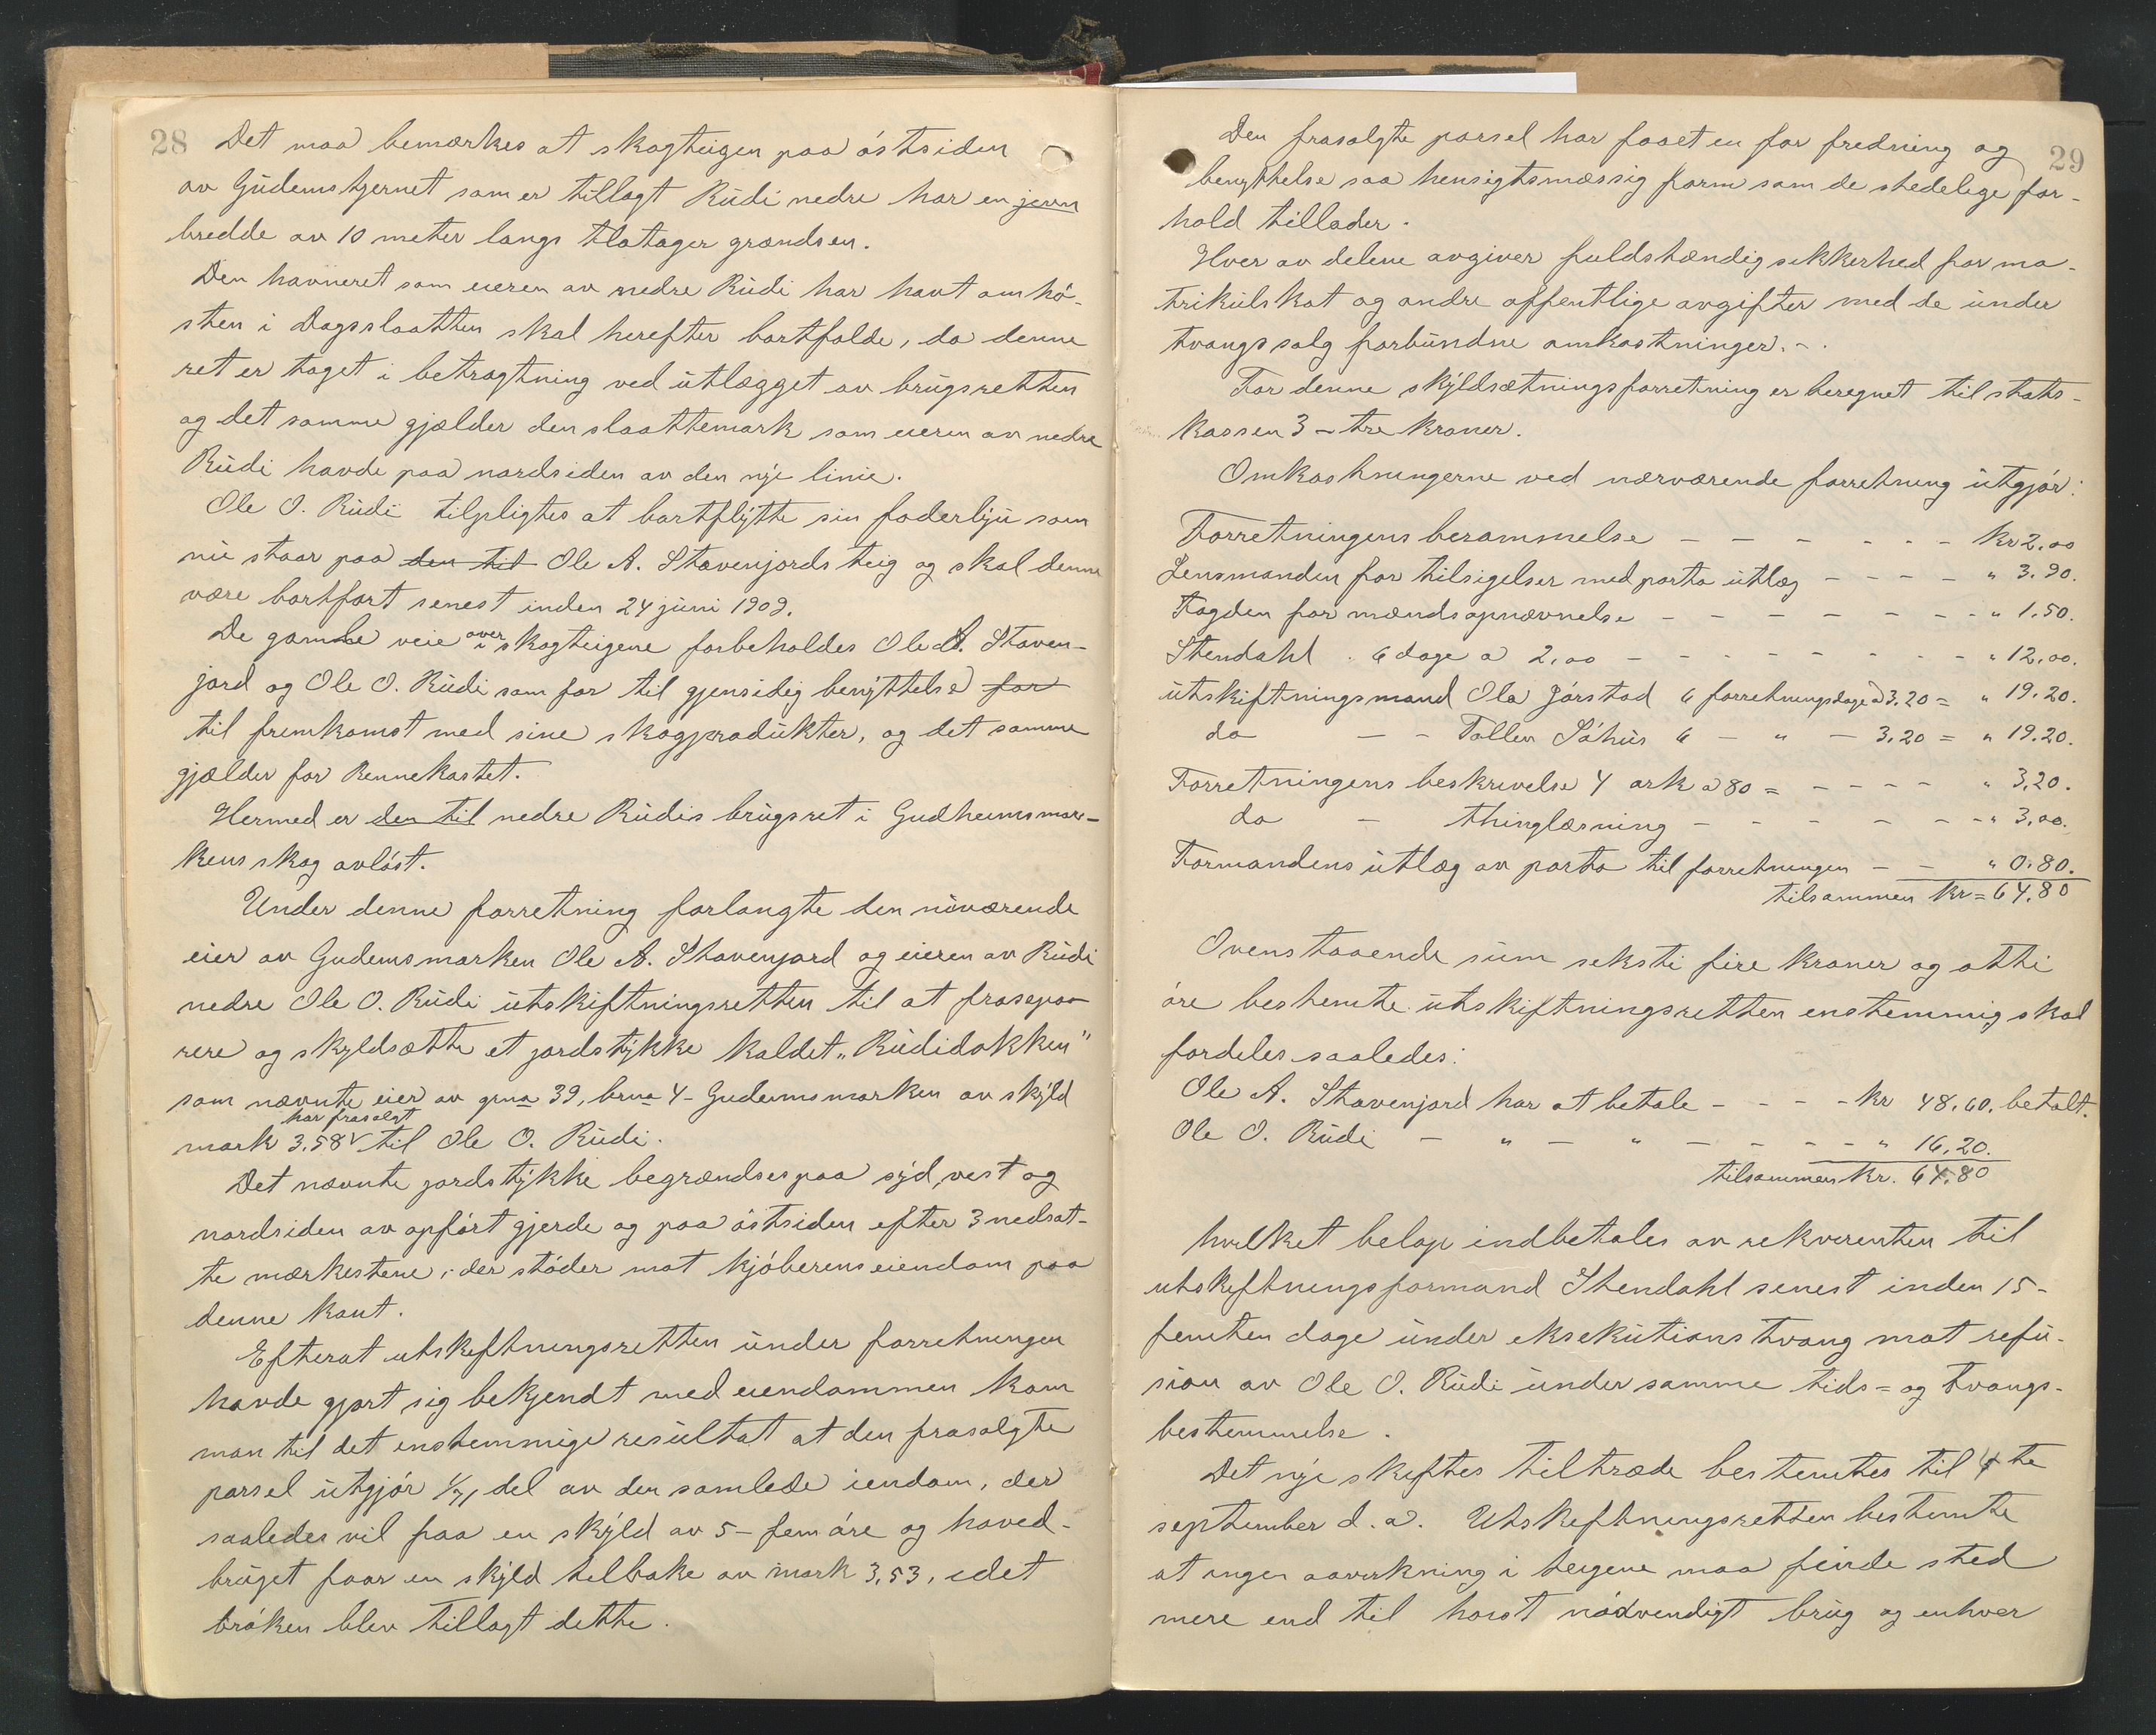 28
Det maa bemærkes at skogteigen paa östsiden
av Gudemstjernet som er tillagt Rudi nedre har en jevn
bredde av 10 meter langs tlatager grændsen.
Den havneret som eieren av nedre Rudi har havt om hö-
sten i Dagsslaatten skal herefter bortfalde, da denne
ret er taget i betragtning ved utlægget av brugsretten
og det samme gjælder den slaattemark som eieren av nedre
Rudi havde paa nordsiden av den nye linie.
Ole O. Rudi tilpligtes at bortflytte sin foderbyu som
nu staar paa den til Ole A. Stavenjords teig og skal denne
være bortfört senest inden 24 juni 1909.
De gamle veie over i skogteigene forbeholdes Ole A. Staven-
jord og Ole O. Rudi som för til gjensidig benyttelse for
til fremkomst med sine skogprodukter, og det samme
gjælder for Rennekastet.
Hermed er den til nedre Rudis brugsret i Gudheimsmar-
kens skog avlöst.
Under denne forretning forlangte den nuværende
eier av Gudemsmarken Ole A. Stavenjord og eieren av Rudi
nedre Ole O. Rudi utskiftningsretten til at frasepa-
rere og skyldsætte et jordstykke kaldet „Rudidokken"
som nævnte eier av grno 39, brno 4 - Gudemsmarken av skyld
mark 3.58 har frasolgt til Ole O. Rudi.
Det nævnte jordstykke begrændses paa syd, vest og
nordsiden av opfört gjerde og paa östsiden efter 3 nedsat-
te mærkestene, der stöder mot kjöberens eiendom paa
denne kant.
Efterat utskiftningsretten under forretningen
havde gjort sig bekjendt med eiendommen kom
man til det enstemmige resultat at den frasolgte
parsel utgjör 1/71 del av den samlede eiendom, der
saaledes vil faa en skyld av 5 - fem öre og hoved-
bruget faar en skyld tilbake av mark 3,53, idet
bröken blev tillagt dette.
29
Den frasolgte parsel har faaet en for fredning og
benyttelse saa hensigtsmæssig form som de stedelige for-
hold tillader.
Hver av delene avgiver fuldstændig sikkerhed for ma-
trikulskat og andre offentlige avgifter med de under
tvangssalg forbundne omkostninger. -.
For denne skyldsætningsforretning er beregnet til stats-
kassen 3 - tre kroner.
Omkostningerne ved nærværende forretning utgjör:
Forretningens berammelse - - - - - - kr 2,00
Lensmanden for tilsigelser med porto utlæg - - - - " 3.90.
Fogden for mændsopnævnelse - - - - - - - " 1.50.
Stendahl . 6 dage a 2,00 - - - - - - - - - " 12,00.
utskiftningsmand Ola Jörstad 6 forretningsdage a 3.20 = " 19.20.
do - - Tollev Söhus 6 - " - 3.20 = " 19.20.
Forretningens beskrivelse 4 ark a 80 = - - - - " 3,20.
do - thinglæsning - - - - - - - " 3,00.
Formandens utlæg av porto til forretningen - - " 0.80.
tilsammen kr = 64.80
Ovenstaaende sum seksti fire kroner og otti
öre bestemte utskiftningsretten enstemmig skal
fordeles saaledes:
Ole A. Stavenjord har at betale - - - - kr 48.60. betalt.
Ole O. Rudi - " - " - - - - - " 16,20.
tilsammen kr. 64.80
hvilket belöp indbetales av rekvirenten til
utskiftningsformand Stendahl senest inden 15 -
femten dage under eksekutions tvang mot refu-
sion av Ole O. Rudi under samme tids = og tvangs-
bestemmelse.
Det nye skiftes tiltræde bestemtes til 4te
september d. a. Utskiftningsretten bestemte
at ingen aavirkning i teigene maa finde sted
mere end til höist nödvendigt brug og enhver